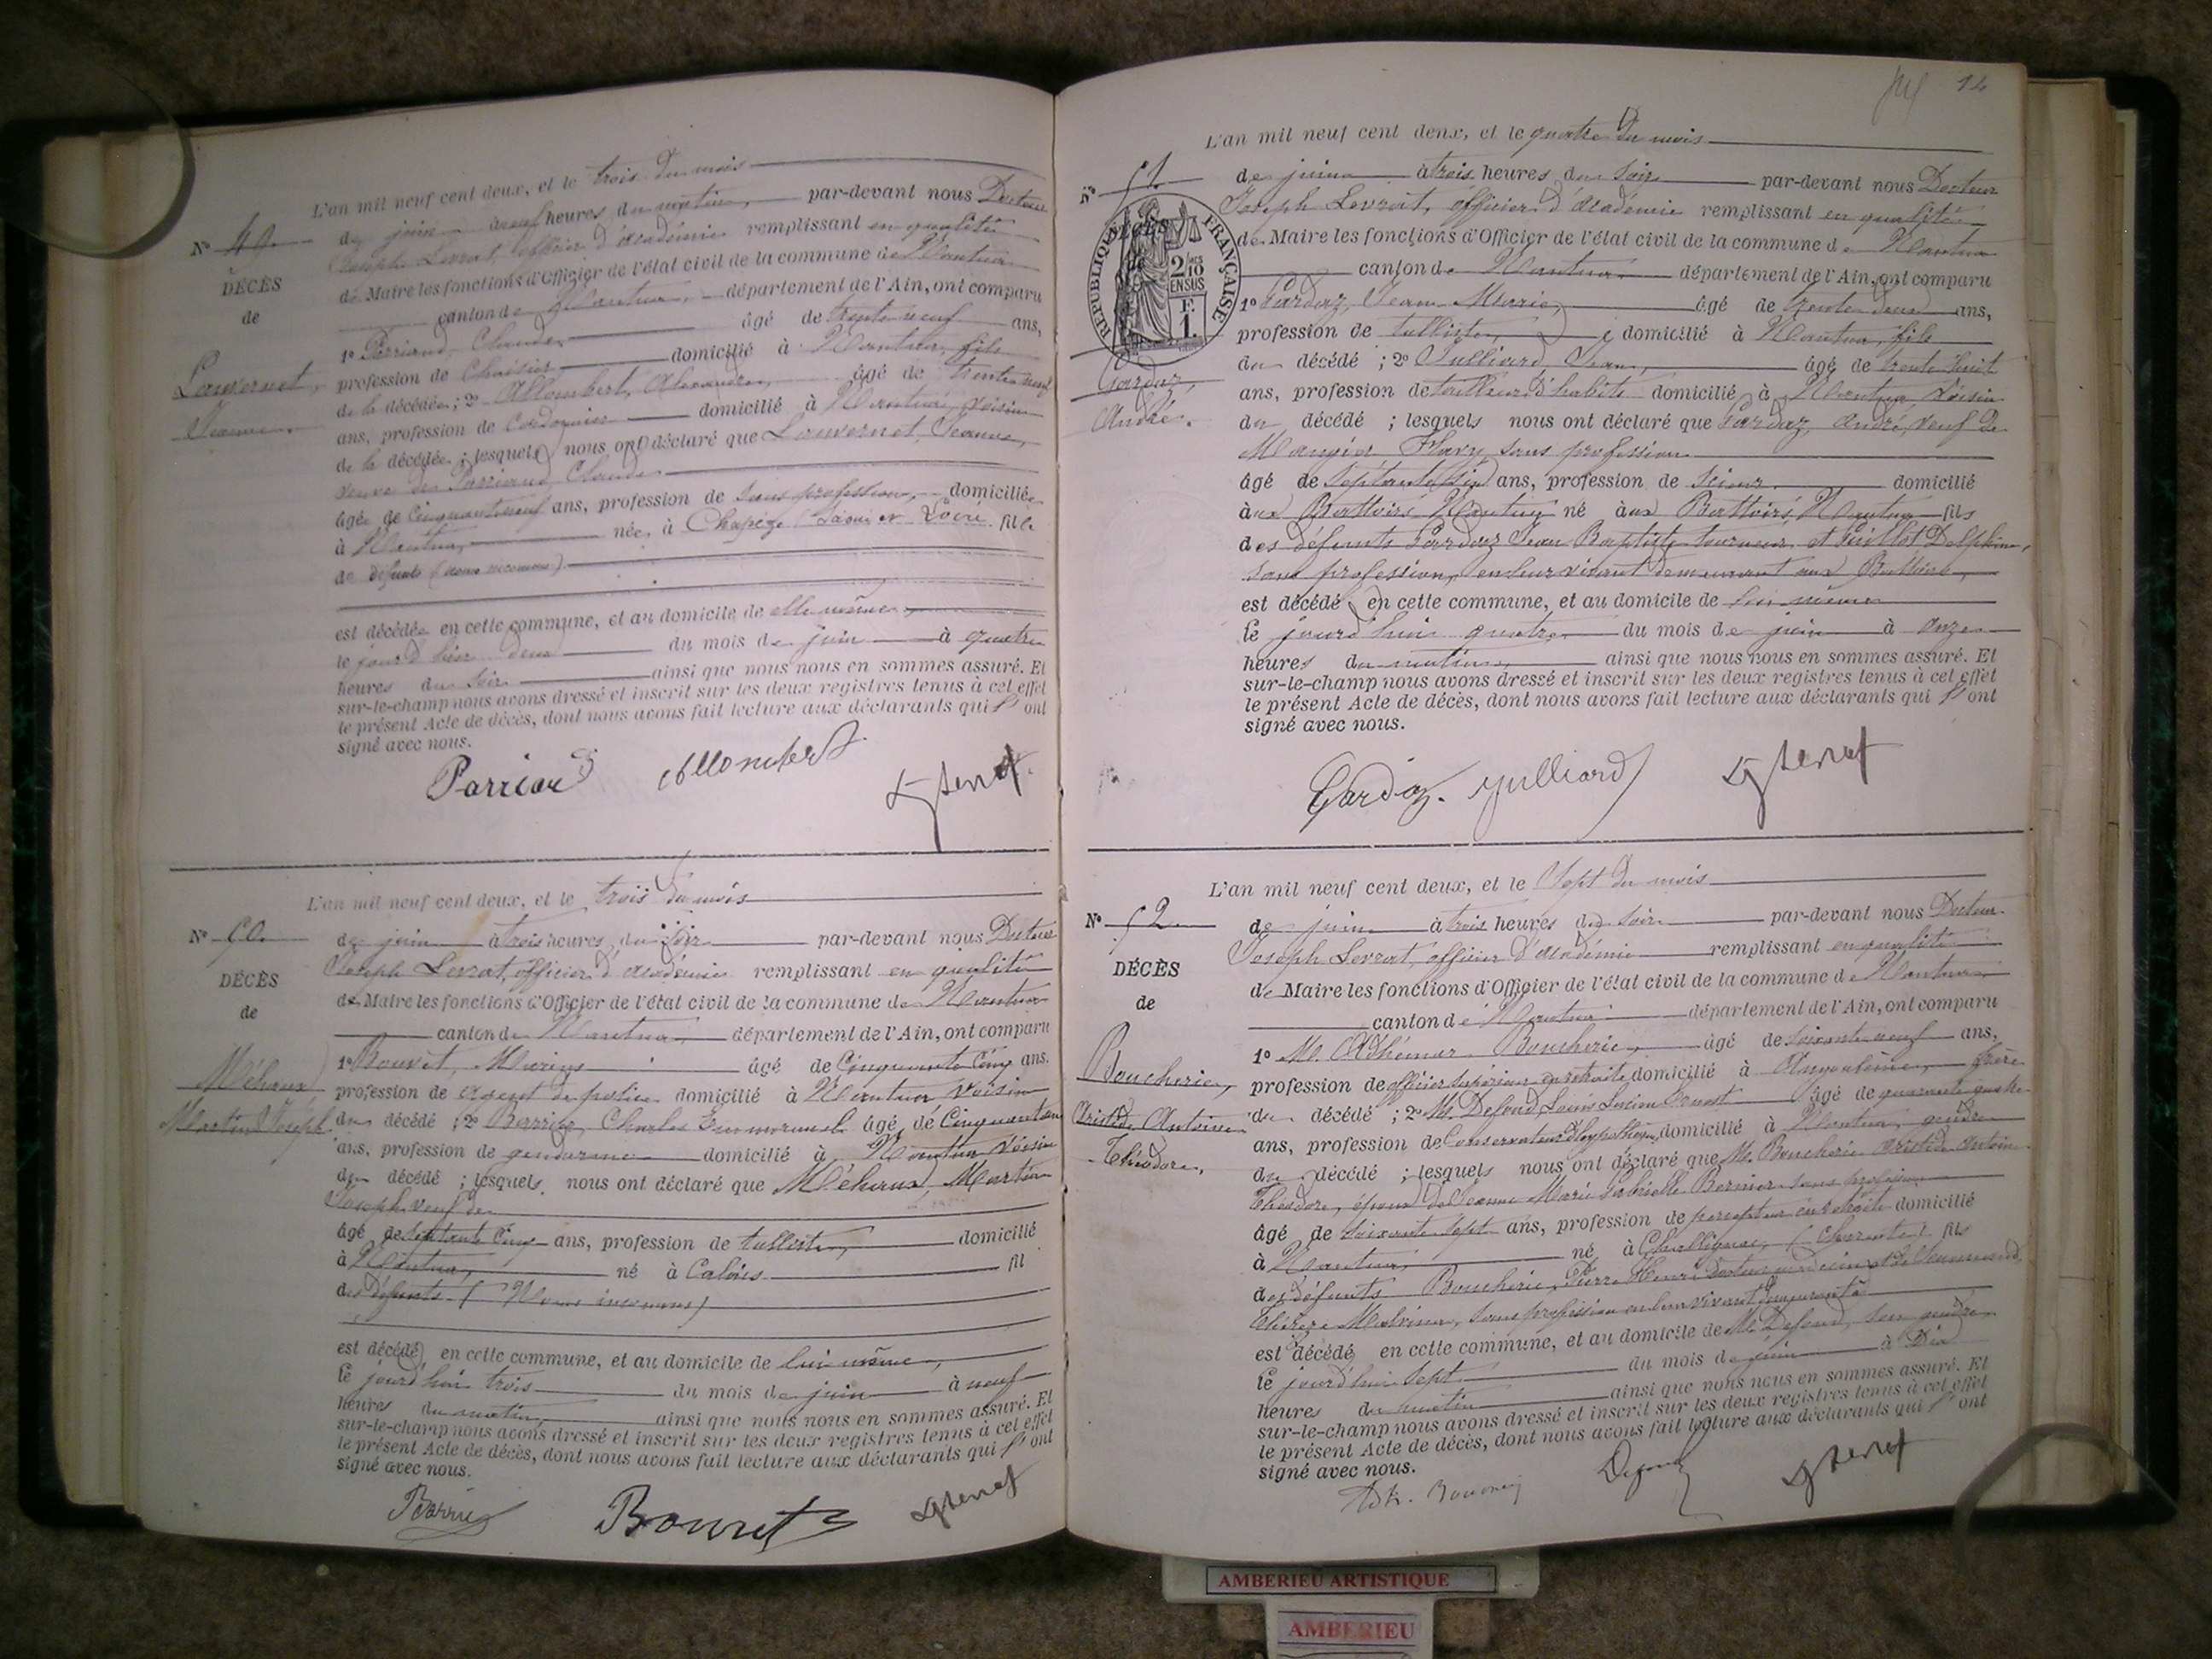 L'an mil neuf cent deux, et le trois du mois
Nº 49
de juin à neuf heures du matin, par-devant nous Docteur
Joseph Levrat, officier d'académie remplissant en qualité
DÉCÈS
de Maire les fonctions d'Officier de l'état civil de la commune de Nantua
de
canton de Nantua, département de l'Ain, ont comparu
1º Perriand, Claude, âgé de trente neuf ans,
Louvernet,
Jeanne.
profession de domicilié à Nantua, fils
de la décédée; 2º Allombert, Alexandre, âgé de trente neuf
ans, profession de Cordonnier domicilié à Nantua, voisin
de la décédée; lesquels nous ont déclaré que Louvernet, Jeanne,
veuve de Perriand, Claude
âgée de cinquante neuf ans, profession de sans profession, domiciliée
à Nantua, née à (Saône et Loire) fille
de défunts (noms inconnus)
est décédée en cette commune, et au domicile de elle même,
le jour d'hier deux du mois de juin à quatre
heures du soir ainsi que nous nous en sommes assuré. Et
sur-le-champ nous avons dressé et inscrit sur les deux registres tenus à cet effet
le présent Acte de décès, dont nous avons fait lecture aux déclarants qui l'ont
signé avec nous.
Perriand Allombert
L'an mil neuf cent deux, et le trois du mois
Nº 50
de juin à trois heures du soir par-devant nous Docteur
Joseph Levrat, officier d'académie remplissant en qualité
DÉCÈS
de Maire les fonctions d'Officier de l'état civil de la commune de Nantua
de
canton de Nantua, département de l'Ain, ont comparu
1º Bouvet, Marius âgé de cinquante cinq ans.
Martin Joseph
profession de agent de police domicilié à Nantua voisin
du décédé; 2º Barrier, Charles Emmanuel âgé de cinquante
ans, profession de gendarme domicilié à Nantua voisin
du décédé; lesquels nous ont déclaré que Martin
Joseph veuf de
âgé de septante cinq ans, profession de tulliste, domicilié
à Nantua, né à Calais fil
des défunts (Noms inconnus)
est décédé en cette commune, et au domicile de lui même,
le jourd'hui trois du mois de juin à neuf
heures du matin, ainsi que nous nous en sommes assuré. Et
sur-le-champ nous avons dressé et inscrit sur les deux registres tenus à cet effet
le présent Acte de décès, dont nous avons fait lecture aux déclarants qui l'ont
signé avec nous.
Bouvet
14
L'an mil neuf cent deux, et le quatre du mois
Nº 51
de juin à trois heures du soir par-devant nous Docteur
Joseph Levrat, officier d'académie remplissant en qualité
DÉCÈS
de Maire les fonctions d'Officier de l'état civil de la commune de Nantua
de
canton de Nantua département de l'Ain, ont comparu
RÉPUBLIQUE FRANÇAISE
2/10 EN SUS
F. 1
1º Gardaz, Jean Marie, âgé de trente deux ans,
profession de tulliste, domicilié à Nantua, fils
Gardaz,
André.
du décédé; 2º Julliard, Jean, âgé de trente huit
ans, profession de tailleur d'habits domicilié à Nantua voisin
du décédé; lesquels nous ont déclaré que Gardaz, André, veuf de
Flavy, sans profession
âgé de septante ans, profession de scieur domicilié
aux Battoirs, Nantua né aux Battoirs, Nantua fils
des défunts Gardaz Jean Baptiste tourneur et Guillot Delphine,
sans profession, en leur vivant demeurant aux Battoirs,
est décédé en cette commune, et au domicile de lui même
le jourd'hui quatre du mois de juin à onze
heures du matin, ainsi que nous nous en sommes assuré. Et
sur-le-champ nous avons dressé et inscrit sur les deux registres tenus à cet effet
le présent Acte de décès, dont nous avons fait lecture aux déclarants qui l'ont
signé avec nous.
Gardaz. Julliard
L'an mil neuf cent deux, et le sept du mois
Nº 52
de juin à trois heures du soir par-devant nous Docteur
Joseph Levrat, officier d'académie remplissant en qualité
DÉCÈS
de Maire les fonctions d'Officier de l'état civil de la commune de Nantua
de
canton de Nantua département de l'Ain, ont comparu
1º M. Adhémar Boucherie, âgé de soixante neuf ans,
Boucherie,
Aristide Antoine
Théodore,
profession de officier supérieur en retraite domicilié à Angoulême, frère
du décédé; 2º M. Defond, Louis Lucien Ernest âgé de quarante quatre
ans, profession de Conservateur d'hypothèques, domicilié à Nantua, gendre
du décédé; lesquels nous ont déclaré que M. Boucherie Aristide Antoine
Théodore, époux de Jeanne Marie Gabrielle Bernier sans profession
âgé de soixante sept ans, profession de percepteur en retraite domicilié
à Nantua, né à Challignac, (Charente) fils
des défunts Boucherie, Pierre Henri docteur en médecine et de
sans profession en leur vivant
est décédé en cette commune, et au domicile de M. Defond, son gendre
le jourd'hui sept du mois de juin à dix
heures du matin ainsi que nous nous en sommes assuré. Et
sur-le-champ nous avons dressé et inscrit sur les deux registres tenus à cet effet
le présent Acte de décès, dont nous avons fait lecture aux déclarants qui l'ont
signé avec nous.
AMBERIEU ARTISTIQUE
AMBERIEU